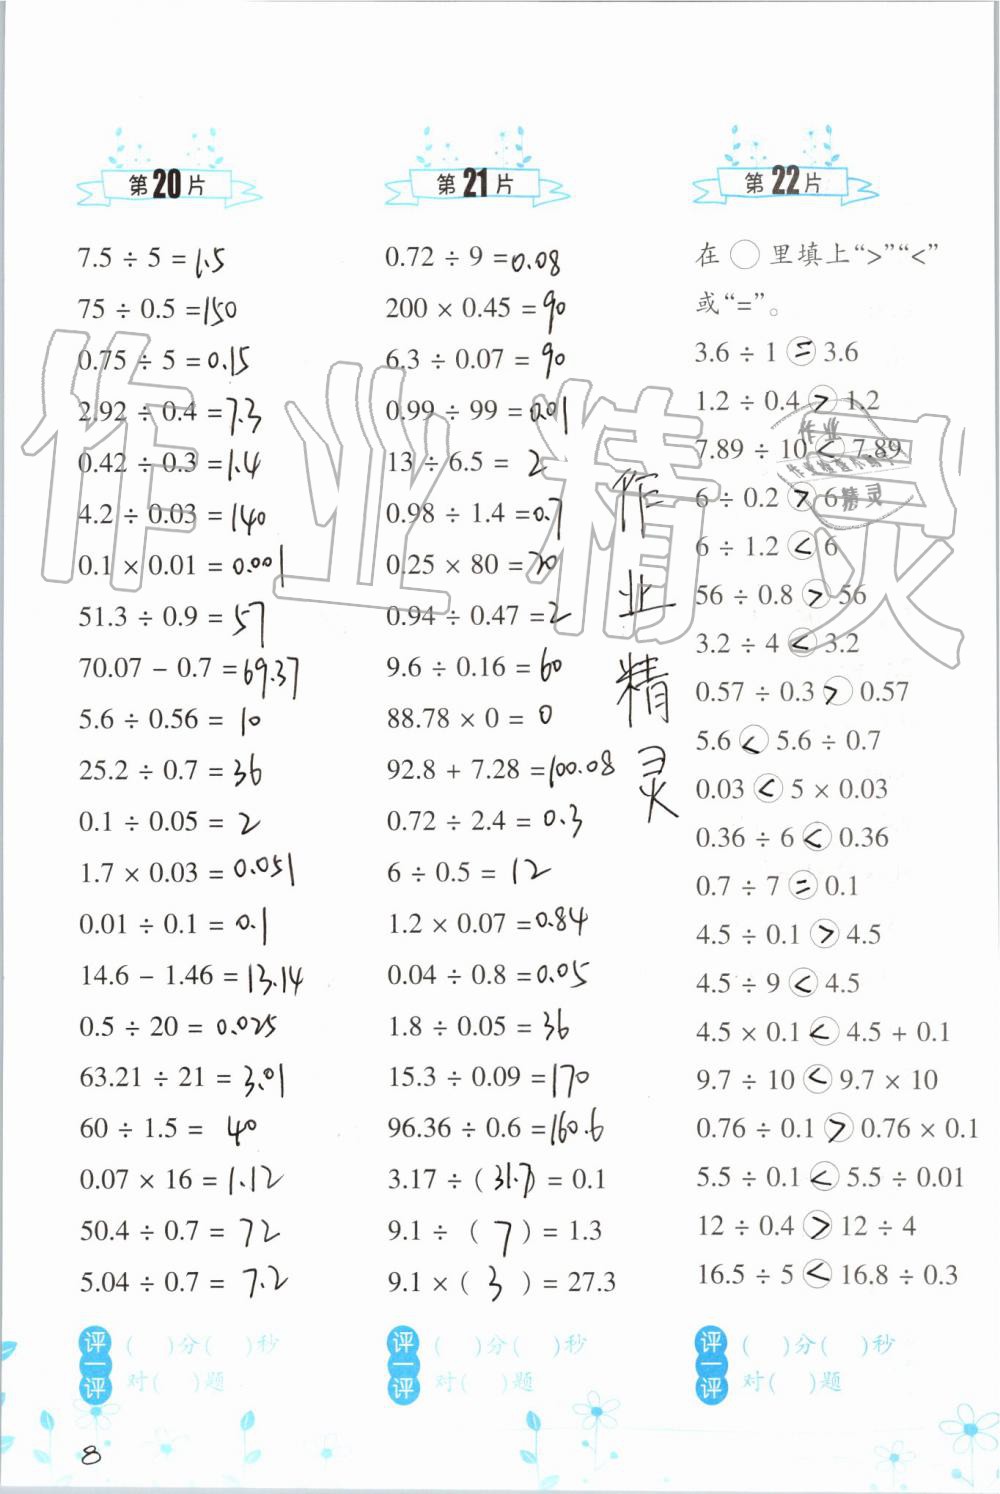 第20片
7.5 ÷ 5 = 1.5
75 ÷ 0.5 = 150
0.75 ÷ 5 = 0.15
2.92 ÷ 0.4 = 7.3
0.42 ÷ 0.3 = 1.4
4.2 ÷ 0.03 = 140
0.1 × 0.01 = 0.001
51.3 ÷ 0.9 = 57
70.07 − 0.7 = 69.37
5.6 ÷ 0.56 = 10
25.2 ÷ 0.7 = 36
0.1 ÷ 0.05 = 2
1.7 × 0.03 = 0.051
0.01 ÷ 0.1 = 0.1
14.6 − 1.46 = 13.14
0.5 ÷ 20 = 0.025
63.21 ÷ 21 = 3.01
60 ÷ 1.5 = 40
0.07 × 16 = 1.12
50.4 ÷ 0.7 = 72
5.04 ÷ 0.7 = 7.2
评一评 ( )分( )秒
对( )题
第21片
0.72 ÷ 9 = 0.08
200 × 0.45 = 90
6.3 ÷ 0.07 = 90
0.99 ÷ 99 = 0.01
13 ÷ 6.5 = 2
0.98 ÷ 1.4 = 0.7
0.25 × 80 = 20
0.94 ÷ 0.47 = 2
9.6 ÷ 0.16 = 60
88.78 × 0 = 0
92.8 + 7.28 = 100.08
0.72 ÷ 2.4 = 0.3
6 ÷ 0.5 = 12
1.2 × 0.07 = 0.84
0.04 ÷ 0.8 = 0.05
1.8 ÷ 0.05 = 36
15.3 ÷ 0.09 = 170
96.36 ÷ 0.6 = 160.6
3.17 ÷ ( 31.7 ) = 0.1
9.1 ÷ ( 7 ) = 1.3
9.1 × ( 3 ) = 27.3
评一评 ( )分( )秒
对( )题
第22片
在 ○ 里填上“>”“<”
或“=”。
3.6 ÷ 1 = 3.6
1.2 ÷ 0.4 > 1.2
7.89 ÷ 10 < 7.89
6 ÷ 0.2 > 6
6 ÷ 1.2 < 6
56 ÷ 0.8 > 56
3.2 ÷ 4 < 3.2
0.57 ÷ 0.3 > 0.57
5.6 < 5.6 ÷ 0.7
0.03 < 5 × 0.03
0.36 ÷ 6 < 0.36
0.7 ÷ 7 = 0.1
4.5 ÷ 0.1 > 4.5
4.5 ÷ 9 < 4.5
4.5 × 0.1 < 4.5 + 0.1
9.7 ÷ 10 < 9.7 × 10
0.76 ÷ 0.1 > 0.76 × 0.1
5.5 ÷ 0.1 < 5.5 ÷ 0.01
12 ÷ 0.4 > 12 ÷ 4
16.5 ÷ 5 < 16.8 ÷ 0.3
评一评 ( )分( )秒
对( )题
作业精灵
作业精灵
作业
精灵
8